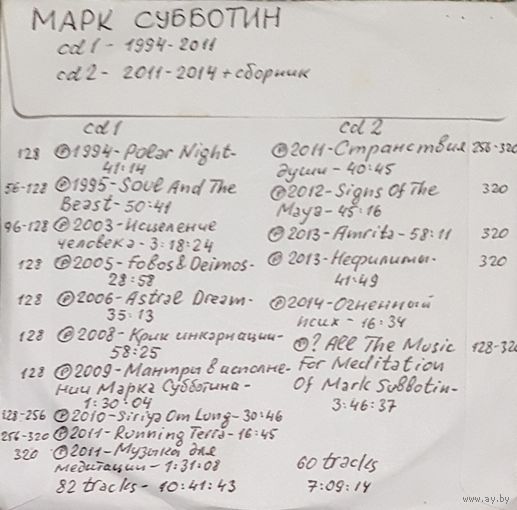 МАРК СУББОТИН
cd1 - 1994-2011
cd2 - 2011-2014 + сборник
cd1
128 ℗1994-Polar Night-
41:14
56-128 ℗1995-Soul And The
Beast-50:41
96-128 ℗2003-Исцеление
человека-3:18:24
128 ℗2005-Fobos&Deimos-
28:58
128 ℗2006-Astral Dream-
35:13
128 ℗2008-Крик инкарнации-
58:25
128 ℗2009-Мантры в исполне-
нии Марка Субботина-
1:30:04
128-256 ℗2010-Siriya Om Lung-30:46
256-320 ℗2011-Running Terra-16:45
320 ℗2011-Музыка для
медитации-1:31:08
82 tracks-10:41:43
cd2
℗2011-Странствия 256-320
души-40:45
℗2012-Signs Of The 320
Maya-45:16
℗2013-Amrita-58:11 320
℗2013-Нефилимы- 320
41:49
℗2014-Огненный
псих-16:34
℗? All The Music 128-320
For Meditation
Of Mark Subbotin-
3:46:37
60 tracks
7:09:14
www.ay.by